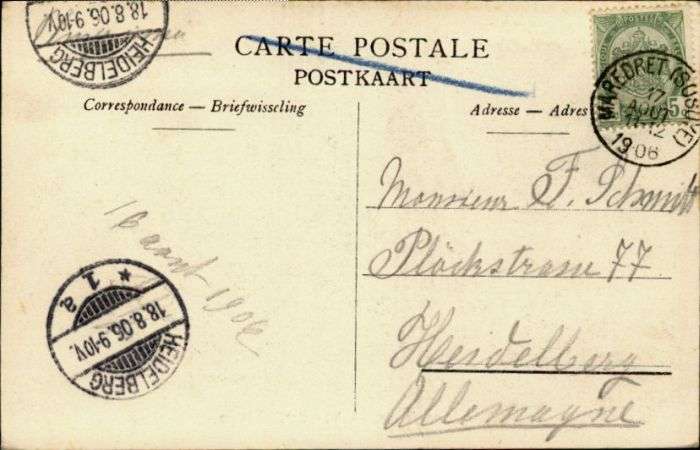 18.8.06.9-10V.
HEIDELBERG
CARTE POSTALE
POSTKAART
Correspondance — Briefwisseling
Adresse — Adres
MAREDRET (SOSOYE)
17
AOUT
11-12
1906
5
16 aout 1906
* 1 a
18.8.06.9-10V.
HEIDELBERG
Monsieur F. Schmitt
Plöckstrasse 77
Heidelberg
Allemagne